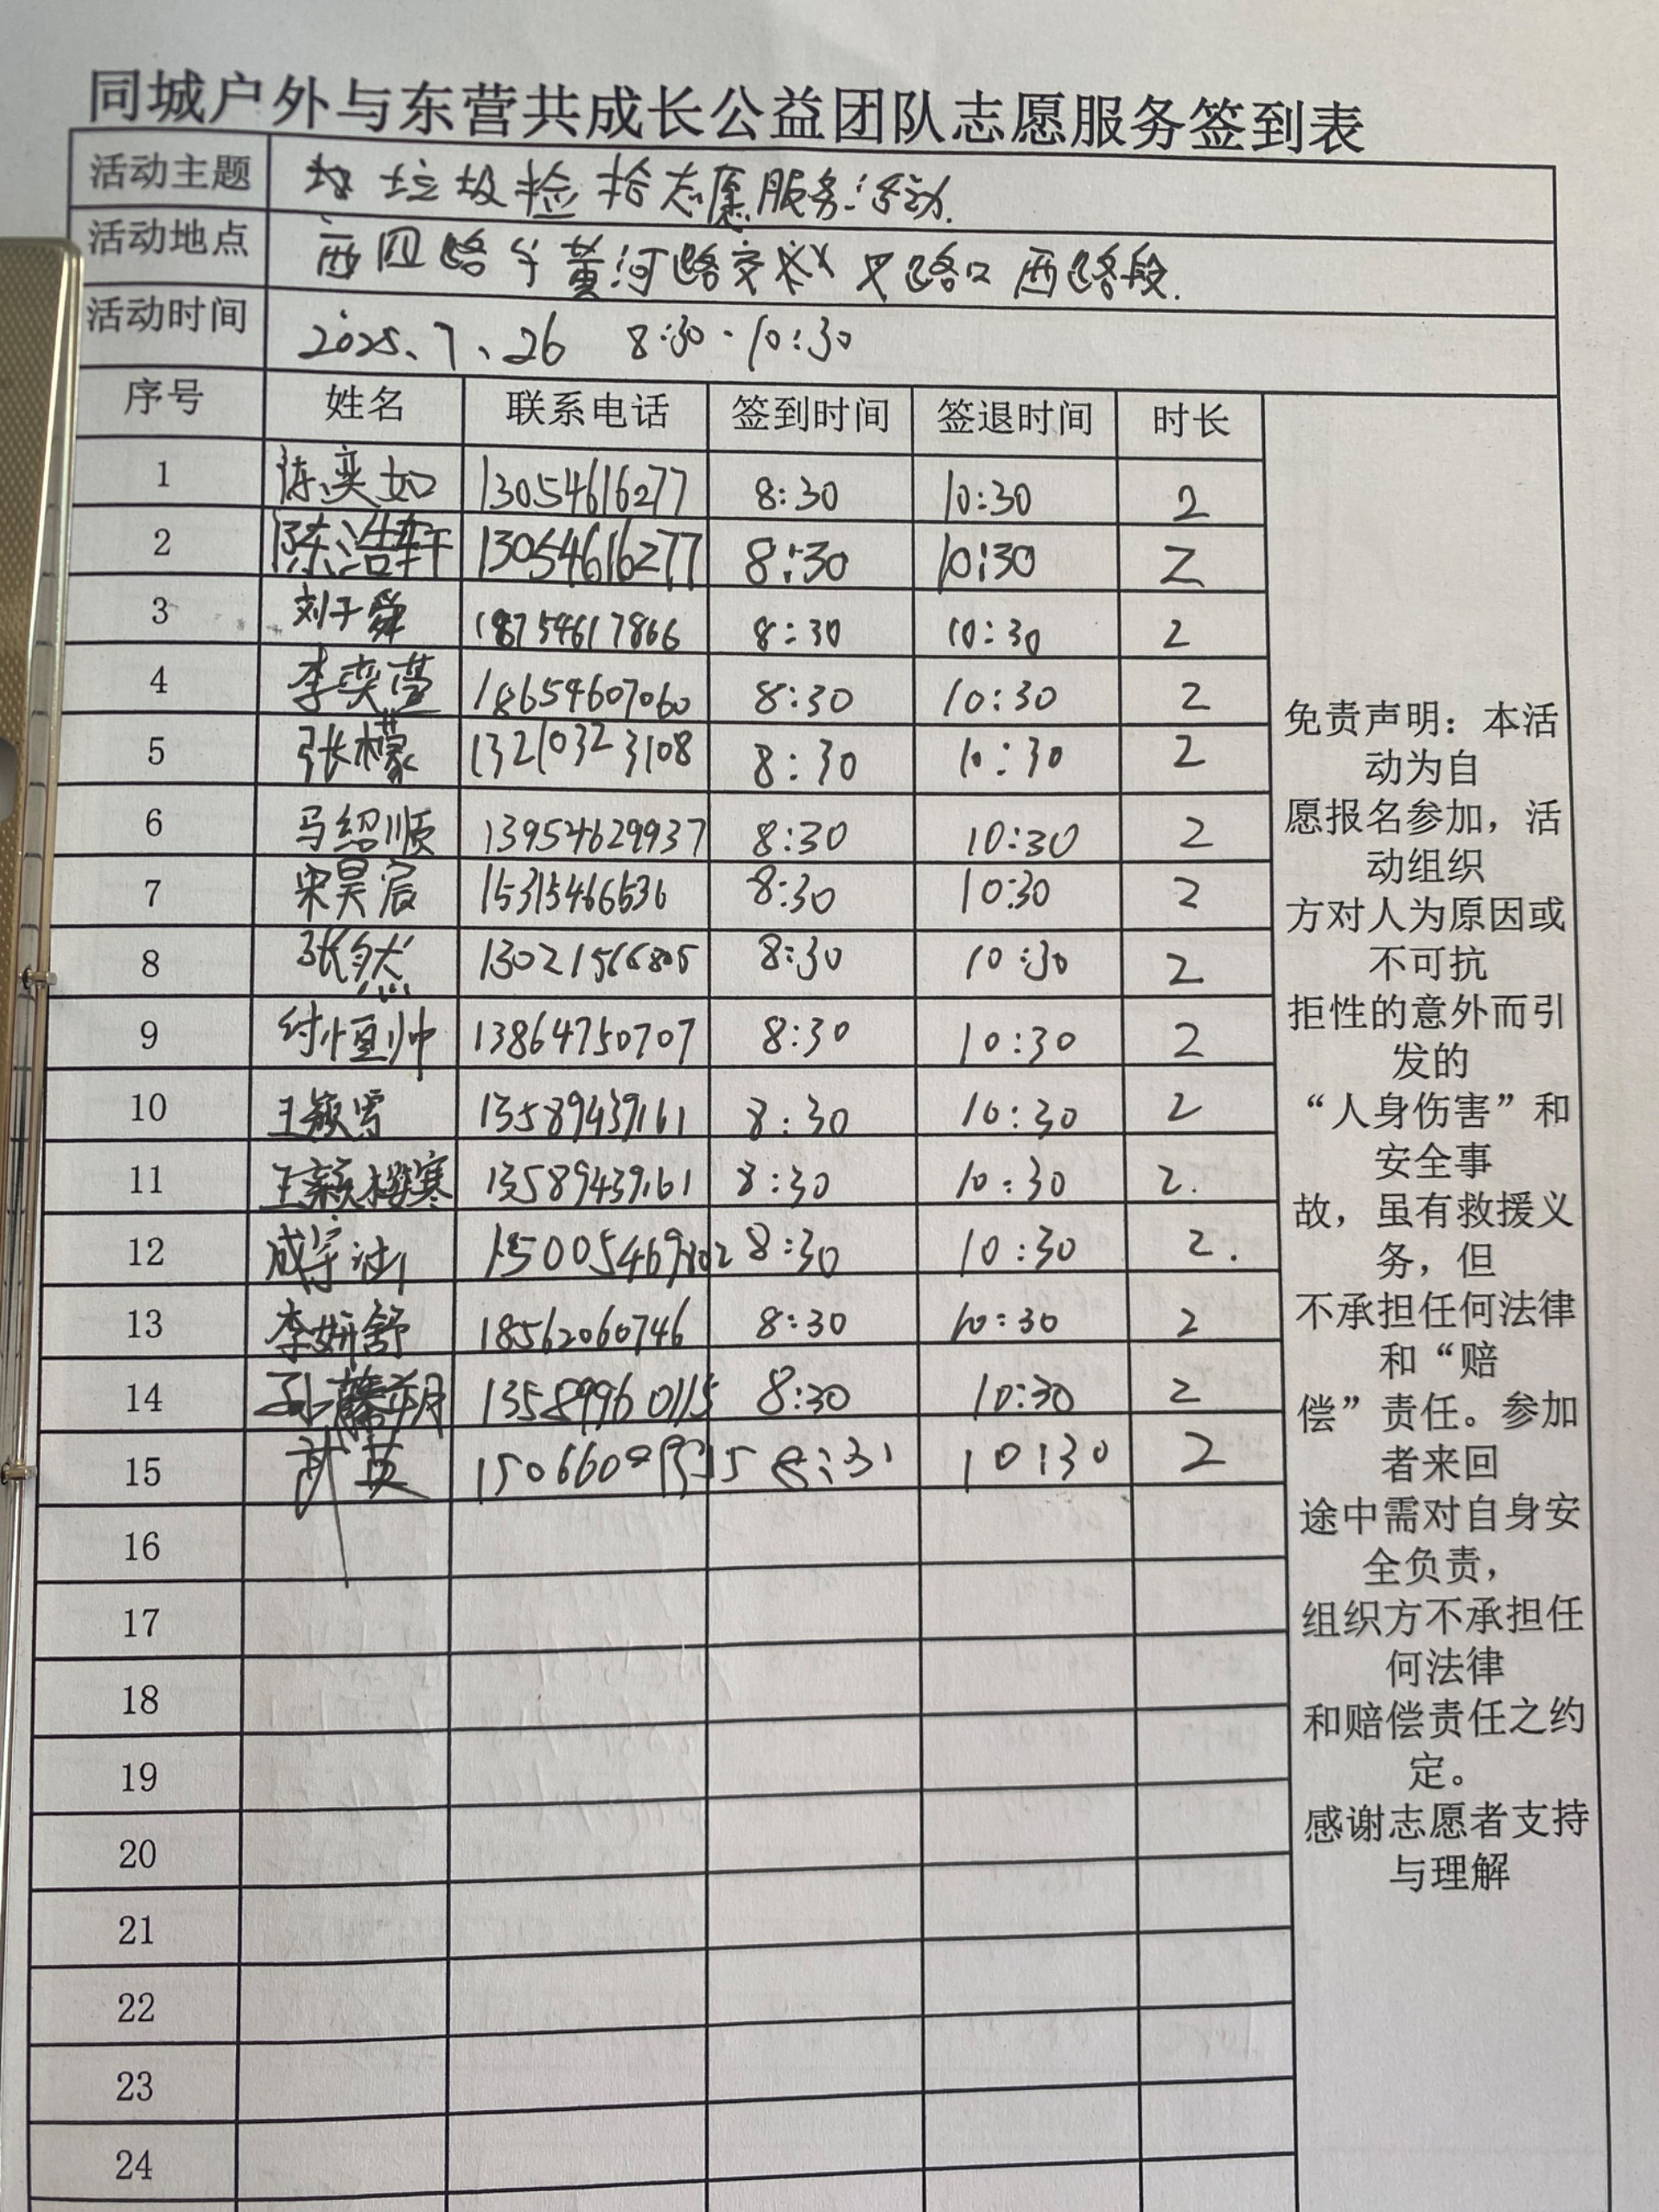 同城户外与东营共成长公益团队志愿服务签到表
活动主题 垃圾捡拾志愿服务活动.
活动地点 西四路与黄河路交叉路口西路段.
活动时间 2025、7、26 8:30-10:30
序号 姓名 联系电话 签到时间 签退时间 时长
1 陈奕如 13054616277 8:30 10:30 2
2 陈浩轩 13054616277 8:30 10:30 2
3 刘于舜 18754617866 8:30 10:30 2
4 李奕萱 18654607060 8:30 10:30 2
5 张檬 13210323108 8:30 10:30 2
6 马绍顺 13954629937 8:30 10:30 2
7 宋昊宸 15315466636 8:30 10:30 2
8 张然 8:30 10:30 2
9 付恒帅 13864750707 8:30 10:30 2
10 王颖雪 13589439161 8:30 10:30 2
11 王颖樱寒 13589439161 8:30 10:30 2.
12 15005469802 8:30 10:30 2.
13 李妍舒 18562060746 8:30 10:30 2
14 孙藤玥 13589960115 8:30 10:30 2
15 武英 8:30 10:30 2
16
17
18
19
20
21
22
23
24
免责声明：本活
动为自
愿报名参加，活
动组织
方对人为原因或
不可抗
拒性的意外而引
发的
“人身伤害”和
安全事
故，虽有救援义
务，但
不承担任何法律
和“赔
偿”责任。参加
者来回
途中需对自身安
全负责，
组织方不承担任
何法律
和赔偿责任之约
定。
感谢志愿者支持
与理解